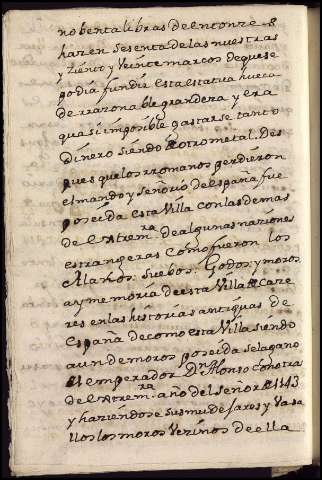 nobenta libras de entonze s
hazen sesenta de las nuestras
y Zient y Veinte marcos de que se
podia fundir esta estatua hueca
de rrazonable grandeza y era
quasi imposible gastarse tanto
Dinero siendo de otro metal. Des
pues que los rromanos perdieron
el mando y señorio de españa fue
poseida esta Villa con las demas
de extremra de algunas naciones
estrangeras como fueron los
Alanos, suebos, Godos, y moros,
ay memoria de esta Villa de Caze
res en las historias antiguas de
España de como esta Villa siendo
aun de moros poseida se la gano
el emperador Dn Alonso con otras
de extremra año del señor de 1143
y haziendose sus mudejares y Vasa
llos los moros Vezinos de ella